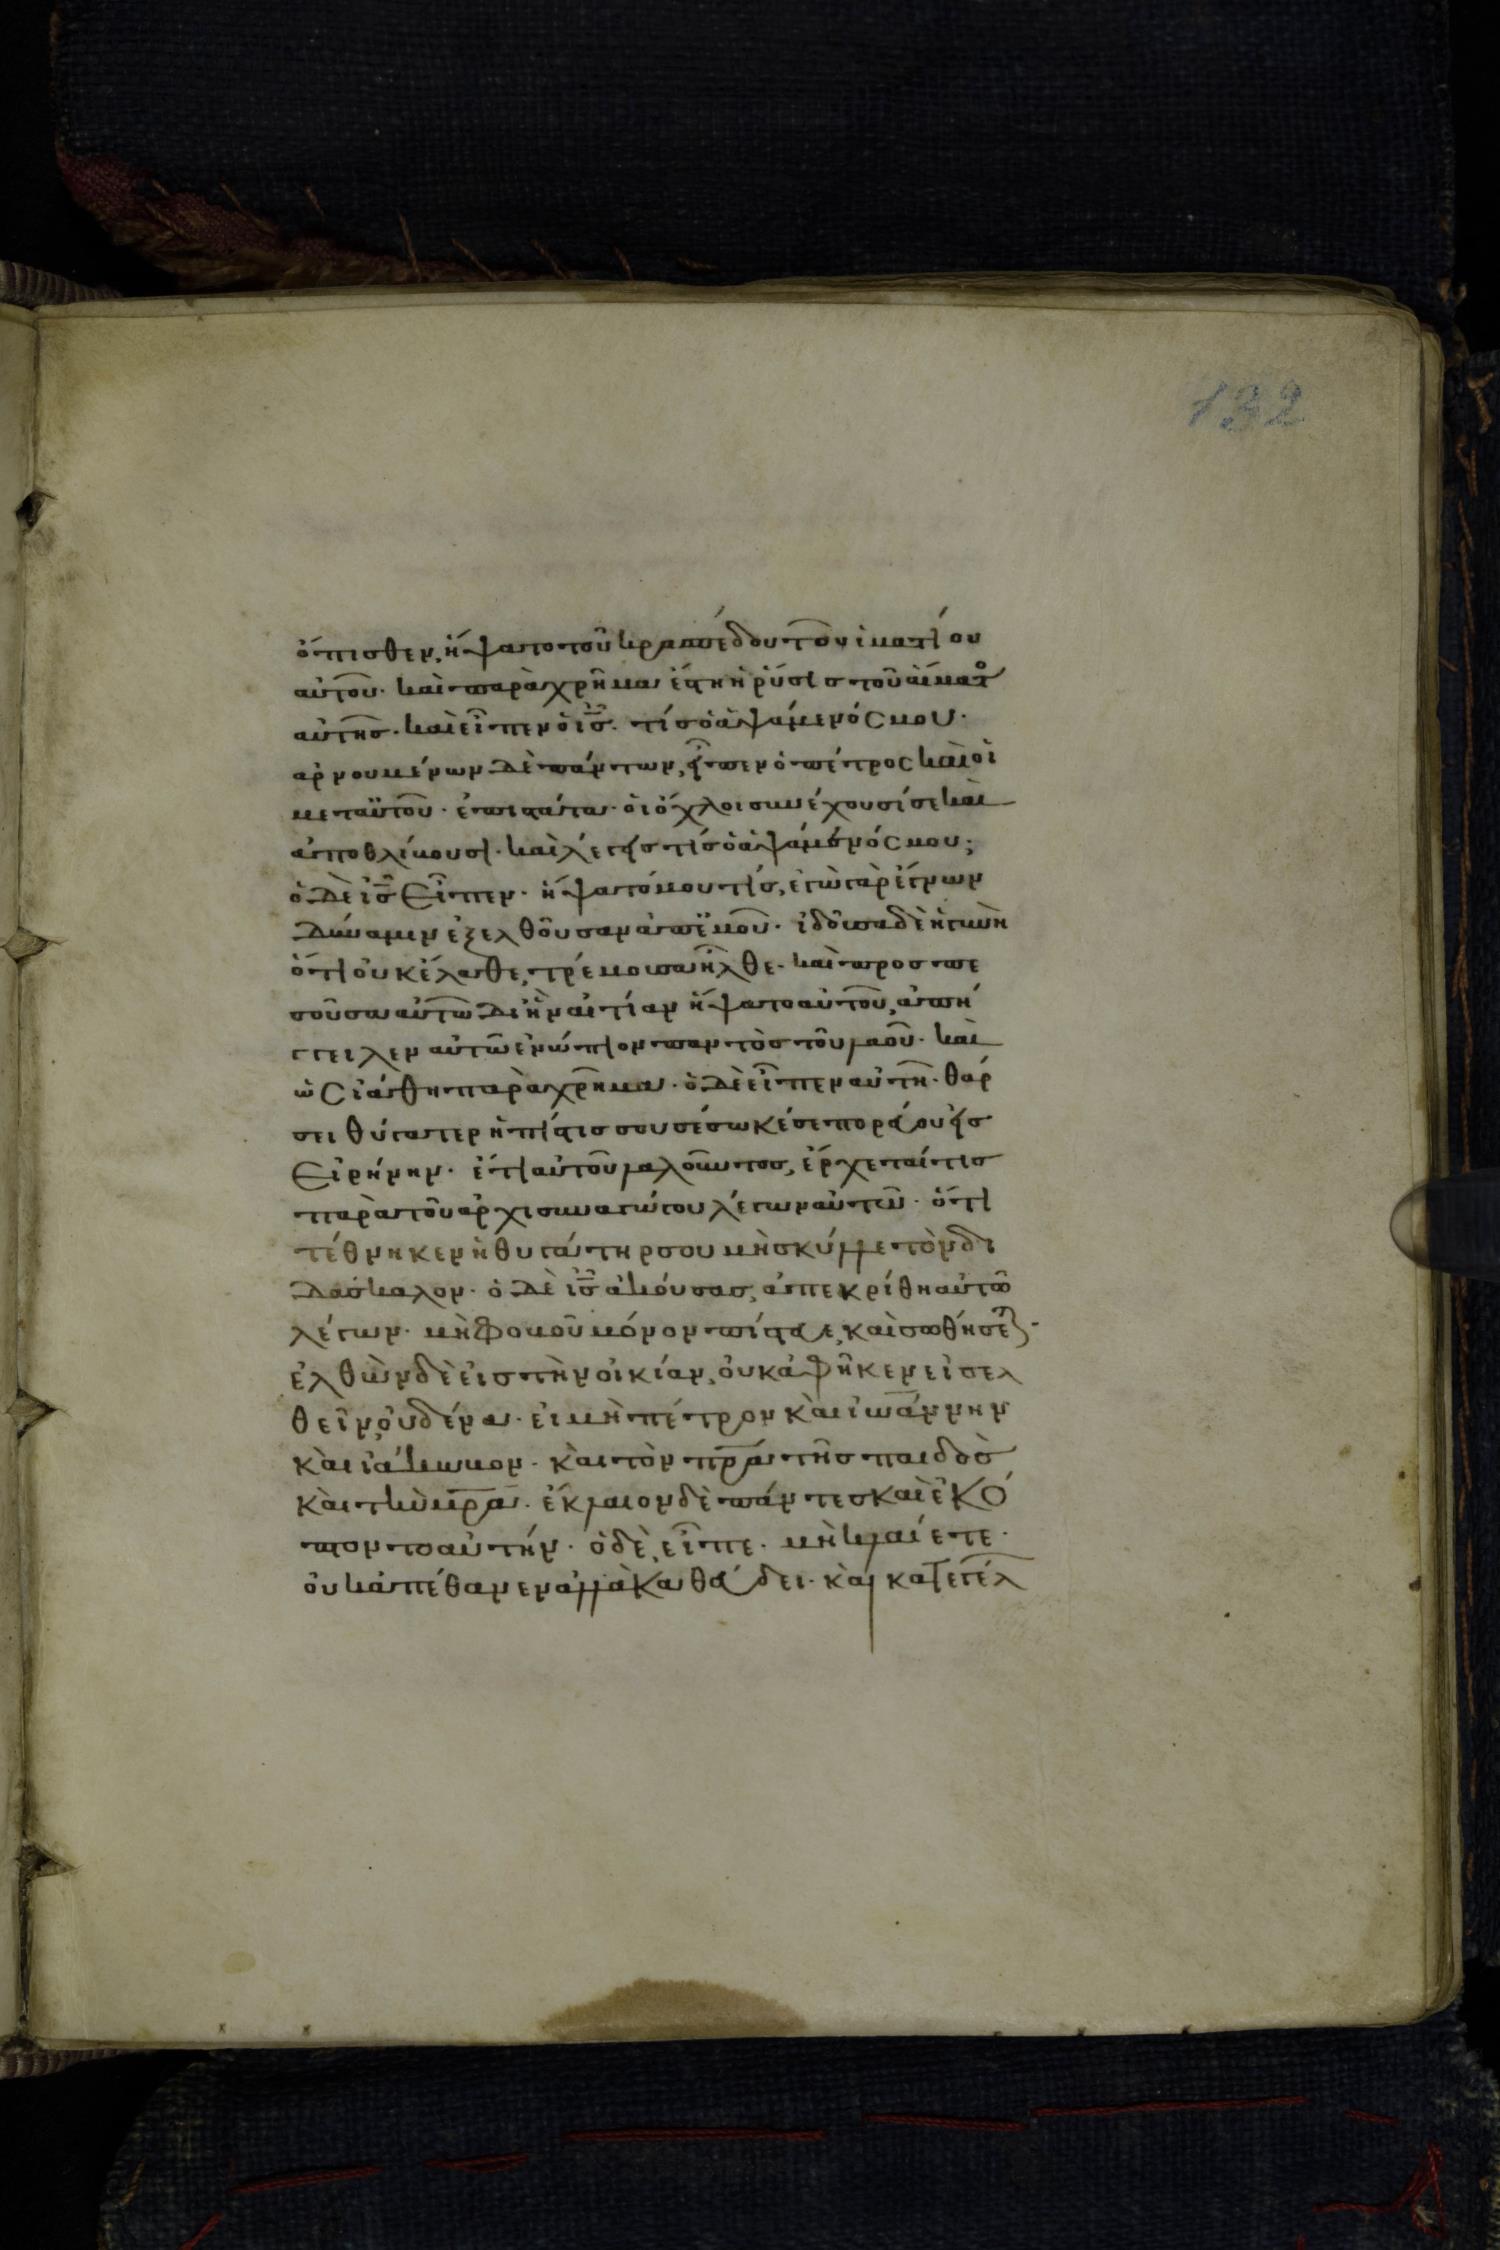 132
ὄπισθεν, ἥψατο τοῦ κρασπέδου τοῦ ἱματίου
αὐτοῦ· καὶ παρὰ χρῆμα ἔστη ἡ ῥύσις τοῦ αἵματος
αὐτῆς· καὶ εἶπεν ὁ ις̅· τίς ὁ ἁψάμενός μου·
ἀρνουμένων δὲ πάντων, εἶπεν ὁ πέτρος καὶ οἱ
μετ αὐτοῦ· ἐπιστάτα· οἱ ὄχλοι συνέχουσί σε καὶ
ἀποθλίβουσι· καὶ λέγεις τίς ὁ ἁψάμενός μου;
ὁ δὲ ις̅ εἶπεν· ἥψατό μου τίς, ἐγὼ γὰρ ἔγνων
δύναμιν ἐξελθοῦσαν ἀπ ἐμοῦ· ἰδοῦσα δὲ ἡ γυνὴ
ὅτι οὐκ ἔλαθε, τρέμουσα ἦλθε· καὶ προσπε
σοῦσα αὐτῶ δι ἣν αἰτίαν ἥψατο αὐτοῦ, ἀπή
γγειλεν αὐτῶ ἐνώπιον παντὸς τοῦ λαοῦ· καὶ
ὡς ἰάθη παρὰ χρῆμα· ὁ δὲ εἶπεν αὐτῆ· θάρ
σει θύγατερ ἡ πίστις σου σέσωκέ σε πορεύου εἰς
εἰρήνην· ἔτι αὐτοῦ λαλοῦντος, ἔρχεταί τις
παρὰ τοῦ ἀρχισυναγώγου λέγων αὐτῶ· ὅτι
τέθνηκεν ἡ θυγάτηρ σου μὴ σκύλλε τὸν δι
δάσκαλον· ὁ δὲ ις̅ ἀκούσας, ἀπεκρίθη αὐτῶ
λέγων· μὴ φοβοῦ μόνον πίστευε, καὶ σωθήσεται·
ἐλθὼν δὲ εἰς τὴν οἰκίαν, οὐκ ἀφῆκεν εἰσελ
θεῖν οὐδένα· εἰ μὴ πέτρον καὶ ἰωάννην
καὶ ἰάκωβον· καὶ τὸν πρ̅α τῆς παιδὸς
καὶ τὴν μρ̅α· ἔκλαιον δὲ πάντες καὶ ἐκό
πτοντο αὐτήν· ὁ δὲ, εἶπε· μὴ κλαίετε·
οὐκ ἀπέθανεν ἀλλὰ καθεύδει· καὶ κατεγέλ